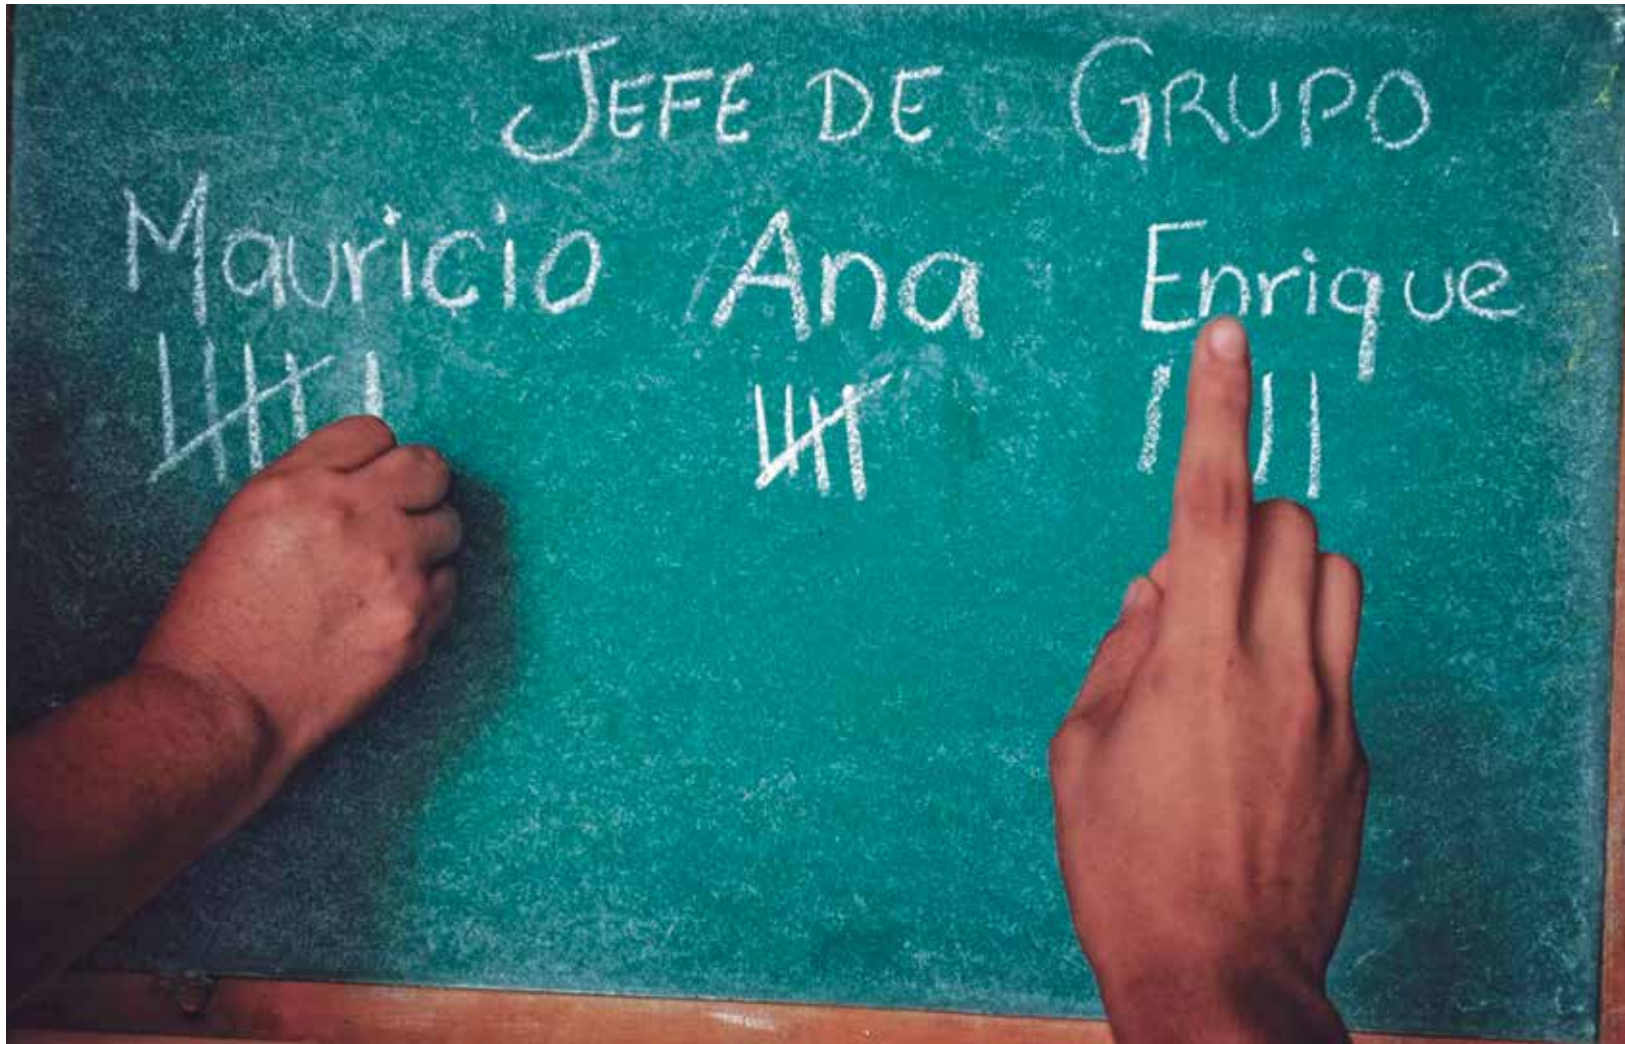 JEFE DE GRUPO
Mauricio Ana Enrique